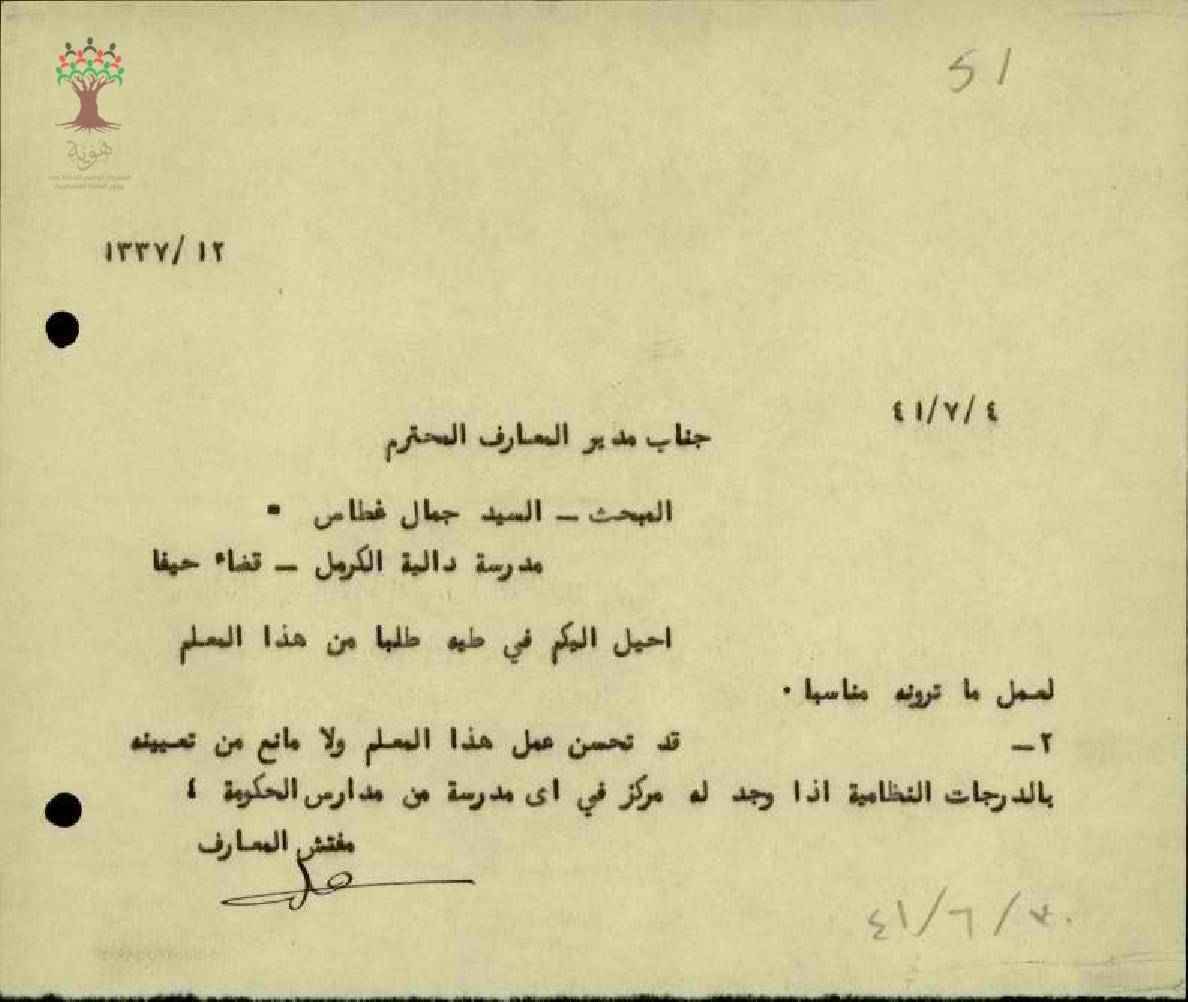 51
هوية
المشروع الوطني للحفاظ على
جذور العائلة الفلسطينية
١٣٣٧/ ١٢
٤١/٧/٤
جناب مدير المعارف المحترم
المبحث – السيد جمال غطاس ٠
مدرسة دالية الكرمل – قضاء حيفا
احيل اليكم في طيه طلبا من هذا المعلم
لعمل ما ترونه مناسبا ٠
٢– قد تحسن عمل هذا المعلم ولا مانع من تعيينه
بالدرجات النظامية اذا وجد له مركز في اى مدرسة من مدارس الحكومة ٤
مفتش المعارف
٤١/٦/٣٠